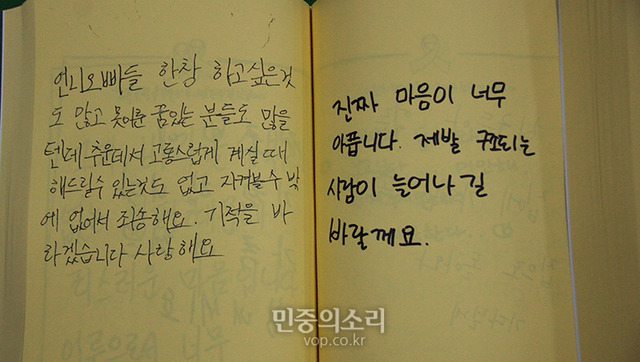 언니오빠들 한창 하고싶은것
도 많고 못이룬 꿈있는 분들도 많을
텐데 추운데서 고통스럽게 계실 때
해드릴수 있는것도 없고 지켜볼수 밖
에 없어서 죄송해요. 기적을 바
라겠습니다 사랑해요
진짜 마음이 너무
아픕니다. 제발 구조되는
사람이 늘어나길
바랄게요.
민중의소리
vop.co.kr